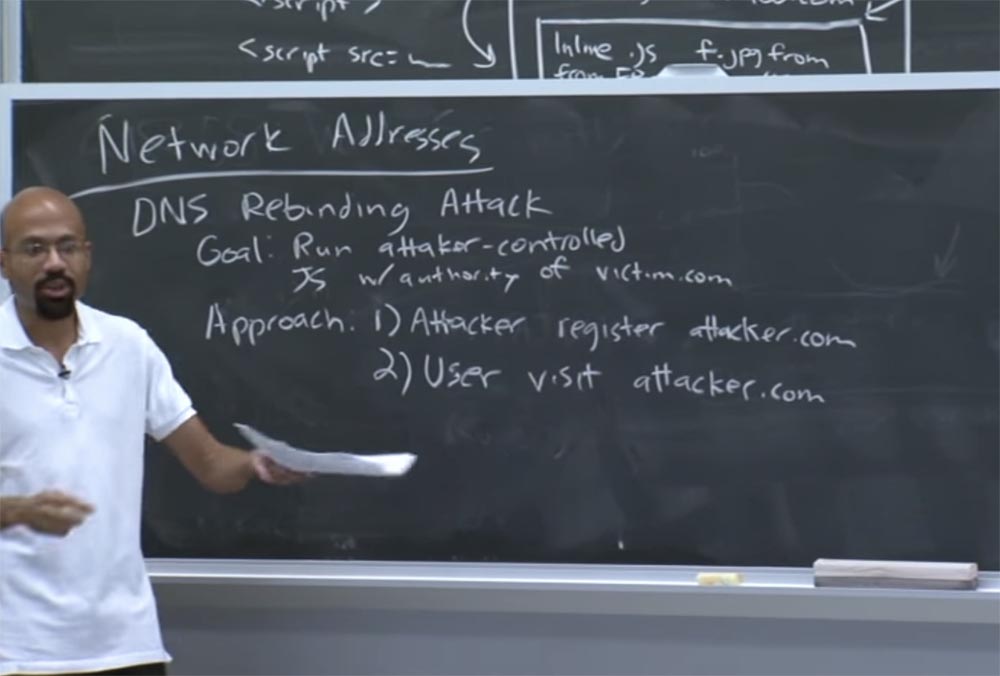 <script src=
Inline .js f.jpg from
Network Addresses
DNS Rebinding Attack
Goal: Run attaker-controlled
JS w/ authority of victim.com
Approach: 1) Attacker register attacker.com
2) User visit attacker.com